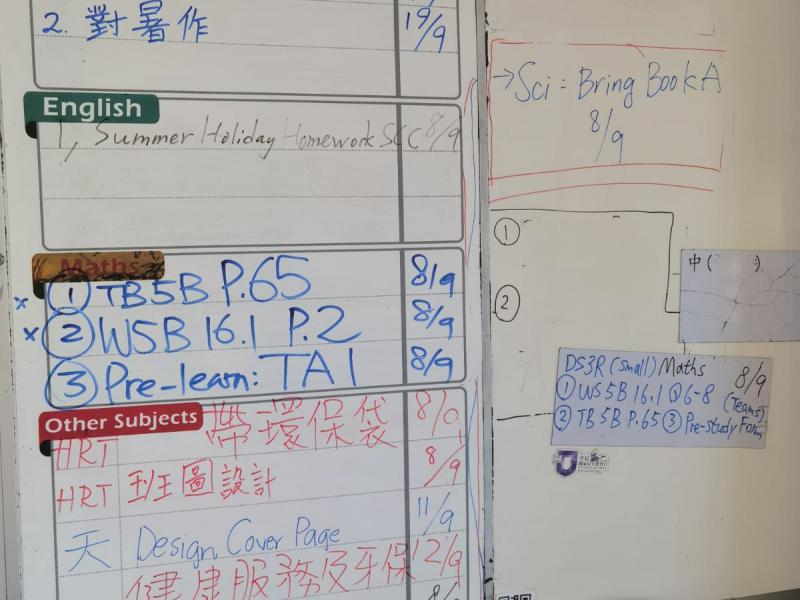 2. 對暑作 19/9
English
1, Summer Holiday Homework SCC 8/9
Maths
① TB5B P.65 8/9
② WS5B 16.1 P.2 8/9
③ Pre-learn: TA1 8/9
Other Subjects
HRT 帶環保袋 8/9
HRT 班圖設計 8/9
天 Design Cover Page 11/9
健康服務及牙保 12/9
→Sci = Bring Book A
8/9
①
②
中( )
DS3R (small) Maths 8/9
① WS 5B 16.1 Q6-8 (Teams)
② TB 5B P.65 ③ Pre-study Form